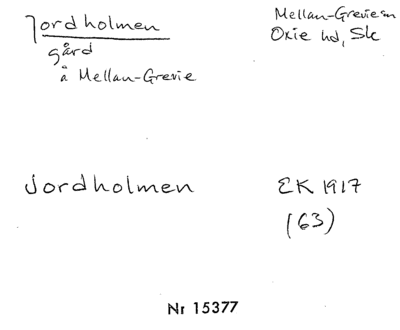 Jordholmen
gård
å Mellan-Grevie
Mellan-Grevie sn
Oxie hd, Sk
Jordholmen
EK 1917
(63)
Nr 15377